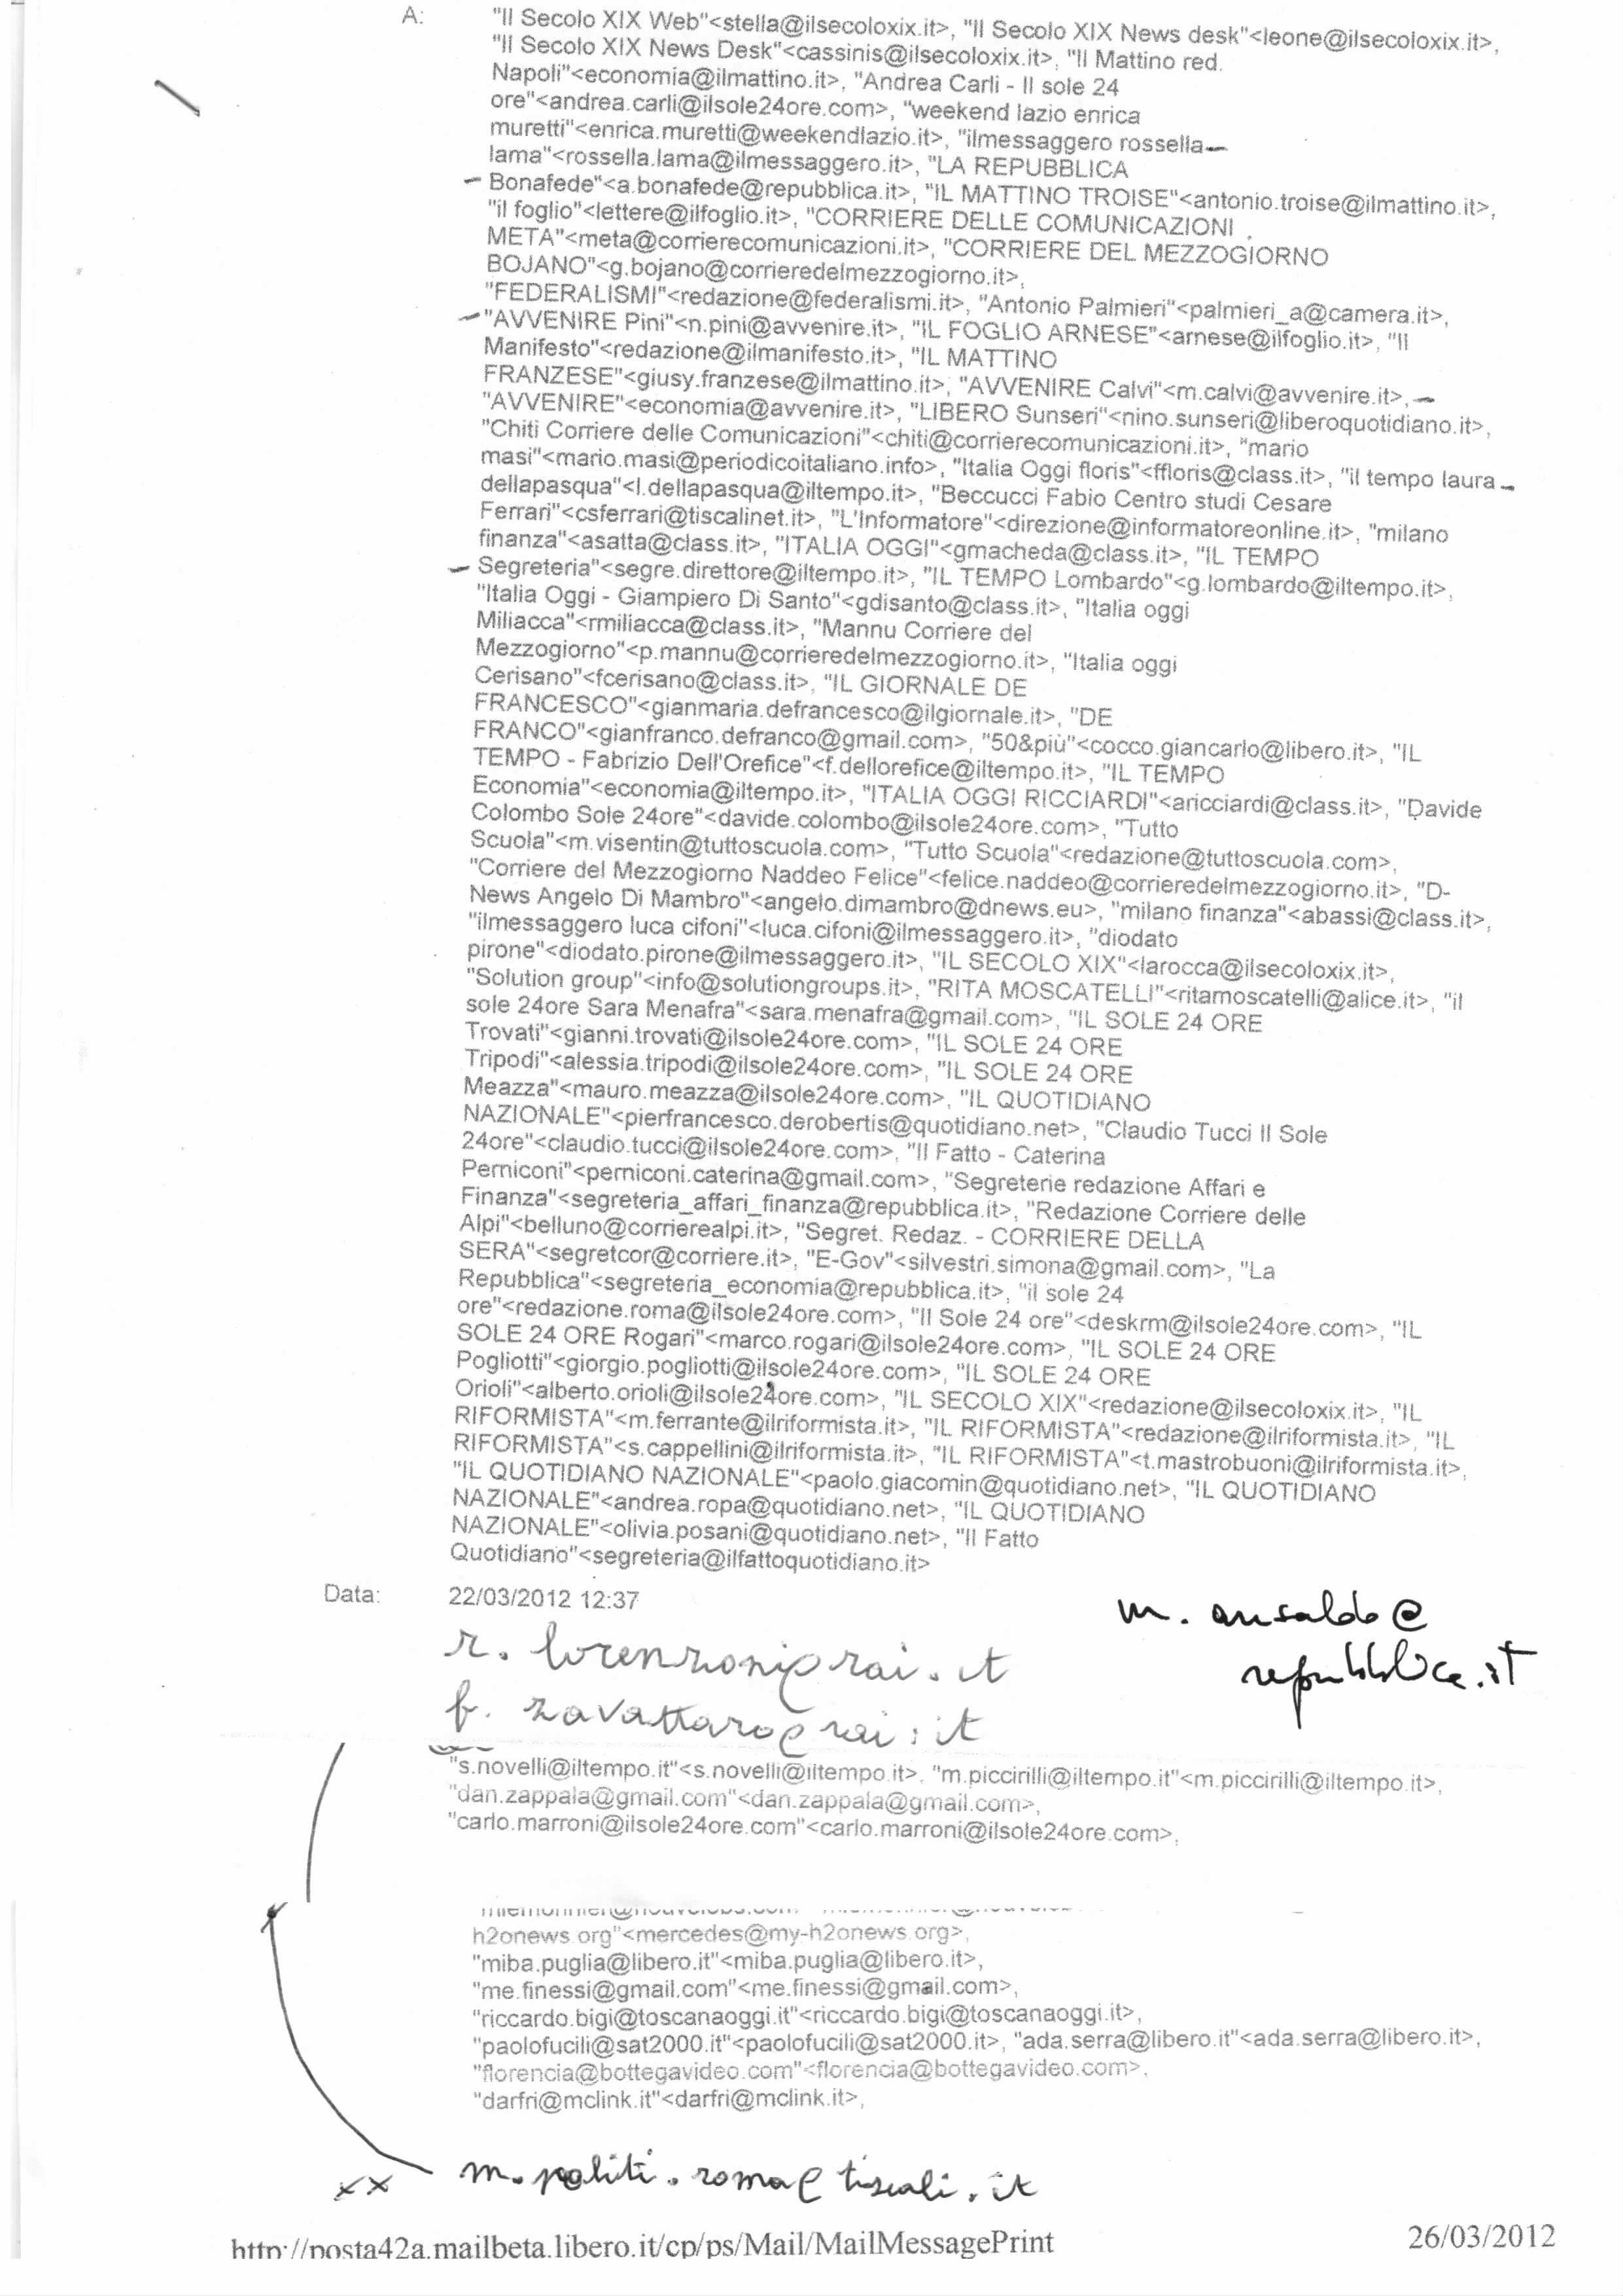 A: "Il Secolo XIX Web"<stella@ilsecoloxix.it>, "Il Secolo XIX News desk"<leone@ilsecoloxix.it>,
"Il Secolo XIX News Desk"<cassinis@ilsecoloxix.it>, "Il Mattino red.
Napoli"<economia@ilmattino.it>, "Andrea Carli - Il sole 24
ore"<andrea.carli@ilsole24ore.com>, "weekend lazio enrica
muretti"<enrica.muretti@weekendlazio.it>, "ilmessaggero rossella
lama"<rossella.lama@ilmessaggero.it>, "LA REPUBBLICA
Bonafede"<a.bonafede@repubblica.it>, "IL MATTINO TROISE"<antonio.troise@ilmattino.it>,
"il foglio"<lettere@ilfoglio.it>, "CORRIERE DELLE COMUNICAZIONI
META"<meta@corrierecomunicazioni.it>, "CORRIERE DEL MEZZOGIORNO
BOJANO"<g.bojano@corrieredelmezzogiorno.it>,
"FEDERALISMI"<redazione@federalismi.it>, "Antonio Palmieri"<palmieri_a@camera.it>,
"AVVENIRE Pini"<n.pini@avvenire.it>, "IL FOGLIO ARNESE"<arnese@ilfoglio.it>, "Il
Manifesto"<redazione@ilmanifesto.it>, "IL MATTINO
FRANZESE"<giusy.franzese@ilmattino.it>, "AVVENIRE Calvi"<m.calvi@avvenire.it>,
"AVVENIRE"<economia@avvenire.it>, "LIBERO Sunseri"<nino.sunseri@liberoquotidiano.it>,
"Chiti Corriere delle Comunicazioni"<chiti@corrierecomunicazioni.it>, "mario
masi"<mario.masi@periodicoitaliano.info>, "Italia Oggi floris"<ffloris@class.it>, "il tempo laura
dellapasqua"<l.dellapasqua@iltempo.it>, "Beccucci Fabio Centro studi Cesare
Ferrari"<csferrari@tiscalinet.it>, "L'Informatore"<direzione@informatoreonline.it>, "milano
finanza"<asatta@class.it>, "ITALIA OGGI"<gmacheda@class.it>, "IL TEMPO
Segreteria"<segre.direttore@iltempo.it>, "IL TEMPO Lombardo"<g.lombardo@iltempo.it>,
"Italia Oggi - Giampiero Di Santo"<gdisanto@class.it>, "Italia oggi
Miliacca"<rmiliacca@class.it>, "Mannu Corriere del
Mezzogiorno"<p.mannu@corrieredelmezzogiorno.it>, "Italia oggi
Cerisano"<fcerisano@class.it>, "IL GIORNALE DE
FRANCESCO"<gianmaria.defrancesco@ilgiornale.it>, "DE
FRANCO"<gianfranco.defranco@gmail.com>, "50&più"<cocco.giancarlo@libero.it>, "IL
TEMPO - Fabrizio Dell'Orefice"<f.dellorefice@iltempo.it>, "IL TEMPO
Economia"<economia@iltempo.it>, "ITALIA OGGI RICCIARDI"<aricciardi@class.it>, "Davide
Colombo Sole 24ore"<davide.colombo@ilsole24ore.com>, "Tutto
Scuola"<m.visentin@tuttoscuola.com>, "Tutto Scuola"<redazione@tuttoscuola.com>,
"Corriere del Mezzogiorno Naddeo Felice"<felice.naddeo@corrieredelmezzogiorno.it>, "D-
News Angelo Di Mambro"<angelo.dimambro@dnews.eu>, "milano finanza"<abassi@class.it>,
"ilmessaggero luca cifoni"<luca.cifoni@ilmessaggero.it>, "diodato
pirone"<diodato.pirone@ilmessaggero.it>, "IL SECOLO XIX"<larocca@ilsecoloxix.it>,
"Solution group"<info@solutiongroups.it>, "RITA MOSCATELLI"<ritamoscatelli@alice.it>, "il
sole 24ore Sara Menafra"<sara.menafra@gmail.com>, "IL SOLE 24 ORE
Trovati"<gianni.trovati@ilsole24ore.com>, "IL SOLE 24 ORE
Tripodi"<alessia.tripodi@ilsole24ore.com>, "IL SOLE 24 ORE
Meazza"<mauro.meazza@ilsole24ore.com>, "IL QUOTIDIANO
NAZIONALE"<pierfrancesco.derobertis@quotidiano.net>, "Claudio Tucci Il Sole
24ore"<claudio.tucci@ilsole24ore.com>, "Il Fatto - Caterina
Perniconi"<perniconi.caterina@gmail.com>, "Segreterie redazione Affari e
Finanza"<segreteria_affari_finanza@repubblica.it>, "Redazione Corriere delle
Alpi"<belluno@corrierealpi.it>, "Segret. Redaz. - CORRIERE DELLA
SERA"<segretcor@corriere.it>, "E-Gov"<silvestri.simona@gmail.com>, "La
Repubblica"<segreteria_economia@repubblica.it>, "il sole 24
ore"<redazione.roma@ilsole24ore.com>, "Il Sole 24 ore"<deskrm@ilsole24ore.com>, "IL
SOLE 24 ORE Rogari"<marco.rogari@ilsole24ore.com>, "IL SOLE 24 ORE
Pogliotti"<giorgio.pogliotti@ilsole24ore.com>, "IL SOLE 24 ORE
Orioli"<alberto.orioli@ilsole24ore.com>, "IL SECOLO XIX"<redazione@ilsecoloxix.it>, "IL
RIFORMISTA"<m.ferrante@ilriformista.it>, "IL RIFORMISTA"<redazione@ilriformista.it>, "IL
RIFORMISTA"<s.cappellini@ilriformista.it>, "IL RIFORMISTA"<t.mastrobuoni@ilriformista.it>,
"IL QUOTIDIANO NAZIONALE"<paolo.giacomin@quotidiano.net>, "IL QUOTIDIANO
NAZIONALE"<andrea.ropa@quotidiano.net>, "IL QUOTIDIANO
NAZIONALE"<olivia.posani@quotidiano.net>, "Il Fatto
Quotidiano"<segreteria@ilfattoquotidiano.it>
Data: 22/03/2012 12:37
m. ansaldo@
repubblica.it
r. lorenzoni@rai.it
f. zavattaro@rai.it
"s.novelli@iltempo.it"<s.novelli@iltempo.it>, "m.piccirilli@iltempo.it"<m.piccirilli@iltempo.it>,
"dan.zappala@gmail.com"<dan.zappala@gmail.com>,
"carlo.marroni@ilsole24ore.com"<carlo.marroni@ilsole24ore.com>,
h2onews.org"<mercedes@my-h2onews.org>,
"miba.puglia@libero.it"<miba.puglia@libero.it>,
"me.finessi@gmail.com"<me.finessi@gmail.com>,
"riccardo.bigi@toscanaoggi.it"<riccardo.bigi@toscanaoggi.it>,
"paolofucili@sat2000.it"<paolofucili@sat2000.it>, "ada.serra@libero.it"<ada.serra@libero.it>,
"florencia@bottegavideo.com"<florencia@bottegavideo.com>,
"darfri@mclink.it"<darfri@mclink.it>,
xx m.politi.roma@tiscali.it
http://posta42a.mailbeta.libero.it/cp/ps/Mail/MailMessagePrint 26/03/2012